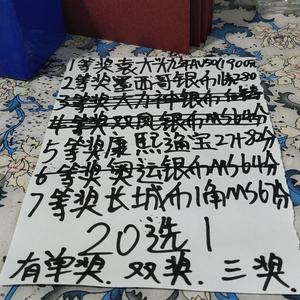 1等奖袁大头九年AU50/1900元
2等奖墨西哥银币1枚280
3等奖大力神银币
4等奖双凤银币MS64分
5等奖康熙通宝27+82分
6等奖奥运银币MS64分
7等奖长城币1角MS67分
20选1
有单奖.双奖.三奖.